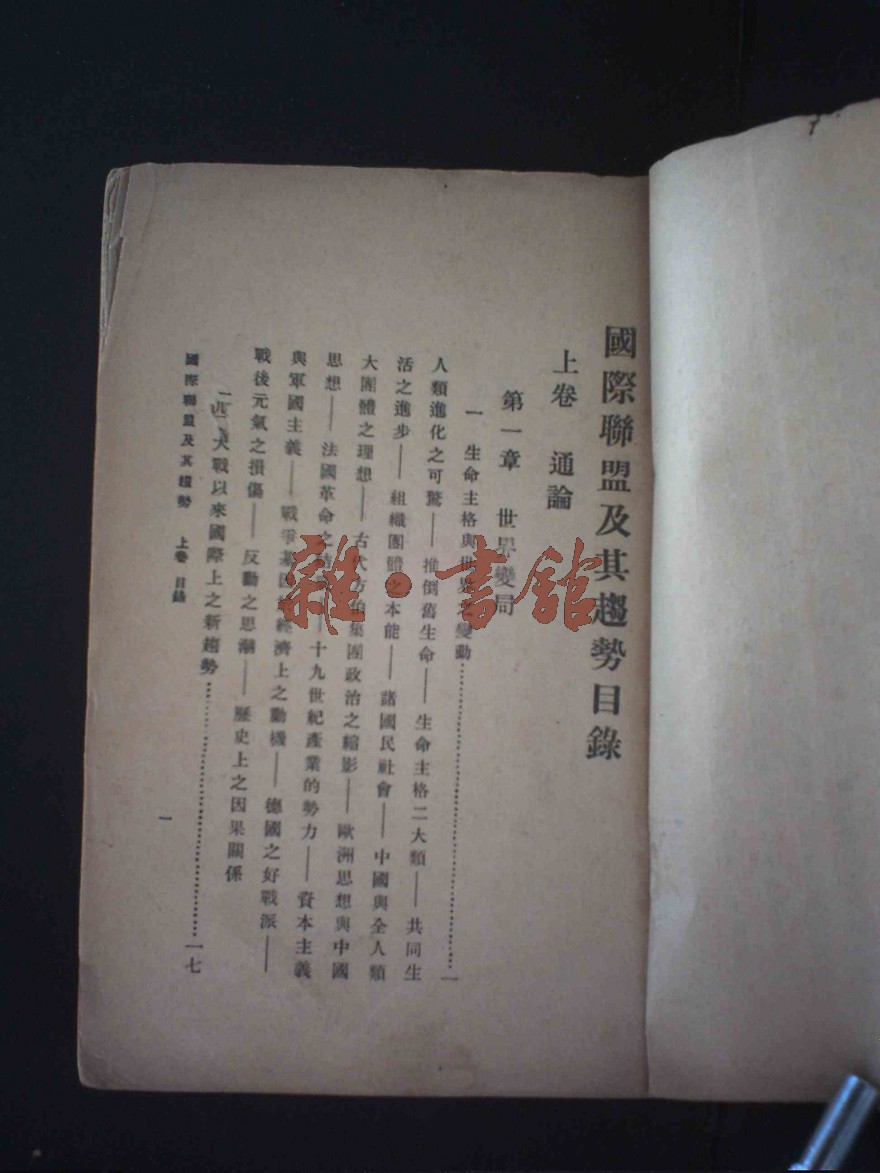 國際聯盟及其趨勢目錄
上卷 通論
第一章 世界變局
一 生命主格與世界之變動……一
人類進化之可驚——推倒舊生命——生命主格二大類——共同生
活之進步——組織團體之本能——諸國民社會——中國與全人類
大團體之理想——古代方伯集團政治之縮影——歐洲思想與中國
思想——法國革命之——十九世紀產業的勢力——資本主義
與軍國主義——戰爭基因於經濟上之動機——德國之好戰派——
戰後元氣之損傷——反動之思潮——歷史上之因果關係
二 大戰以來國際上之新趨勢……一七
國際聯盟及其趨勢 上卷 目錄
一
雜·書館